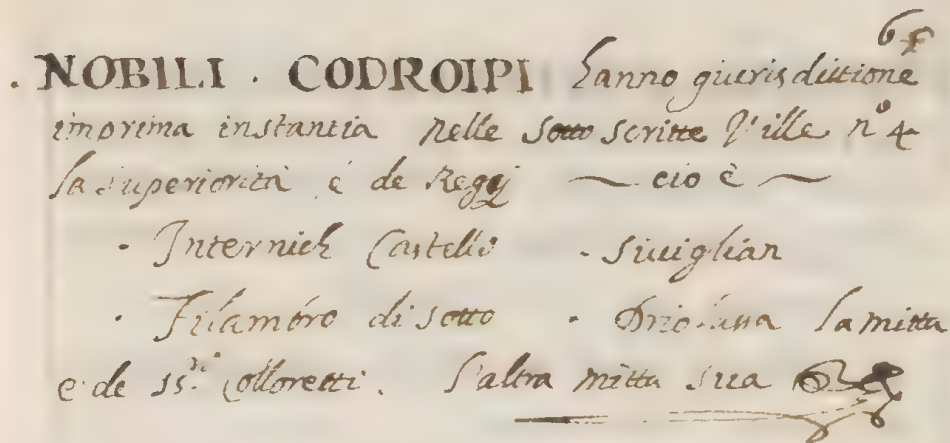 6
. NOBILI . CODROIPI hanno giurisdittione
in prima instantia nelle sotto scritte Ville n.º 4
la superiorità é de Regij ~ cio è ~
· Internich Castello · Siuiglian
· Flambro di sotto · Driolassa la mitta
e de SS.ri Colloretti. L'altra mitta sua